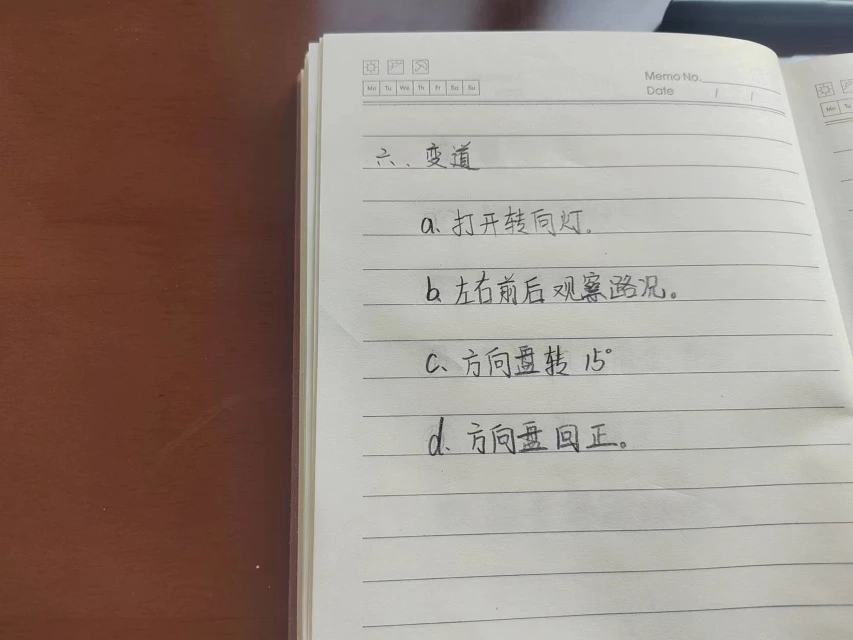 Memo No.
Mo Tu We Th Fr Sa Su
Date / /
六、变道
a、打开转向灯。
b、左右前后观察路况。
c、方向盘转 15°
d、方向盘回正。
Mo Tu